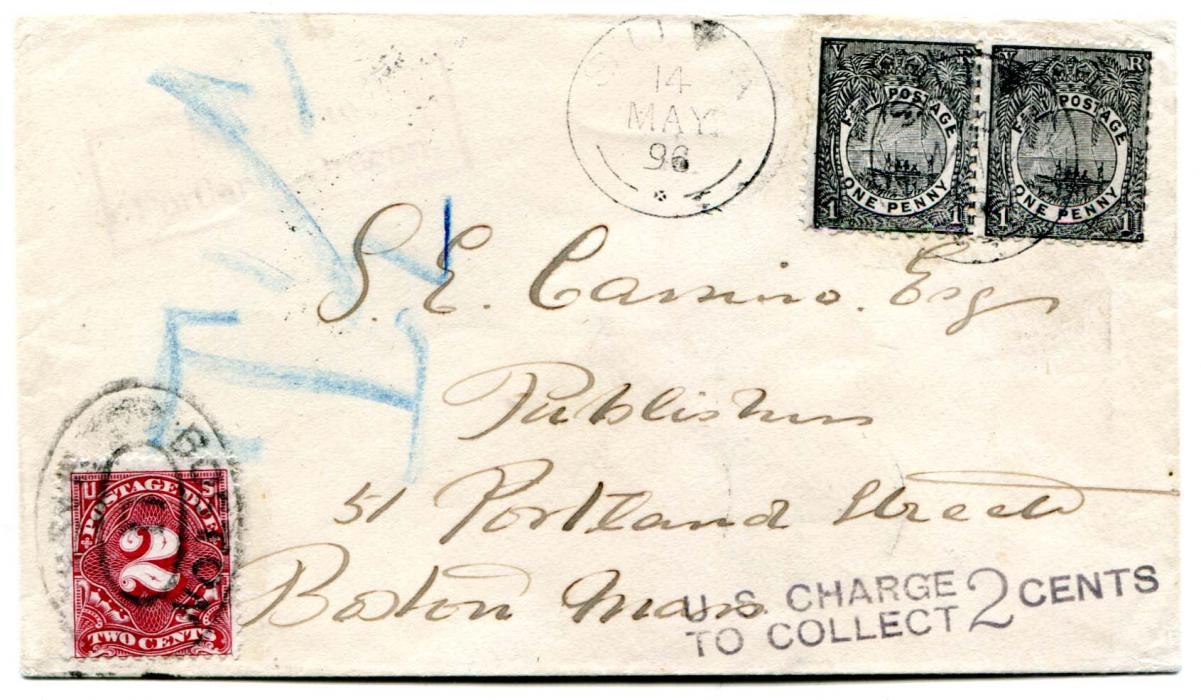 SUVA
14
MAY
96
V R
FIJI POSTAGE
ONE PENNY
1 1
V R
FIJI POSTAGE
ONE PENNY
1 1
S. E. Cassino. Esq
Publishers
51 Portland Street
Boston Mass
BOSTON
U S
POSTAGE DUE
2
TWO CENTS
U.S. CHARGE
TO COLLECT 2 CENTS